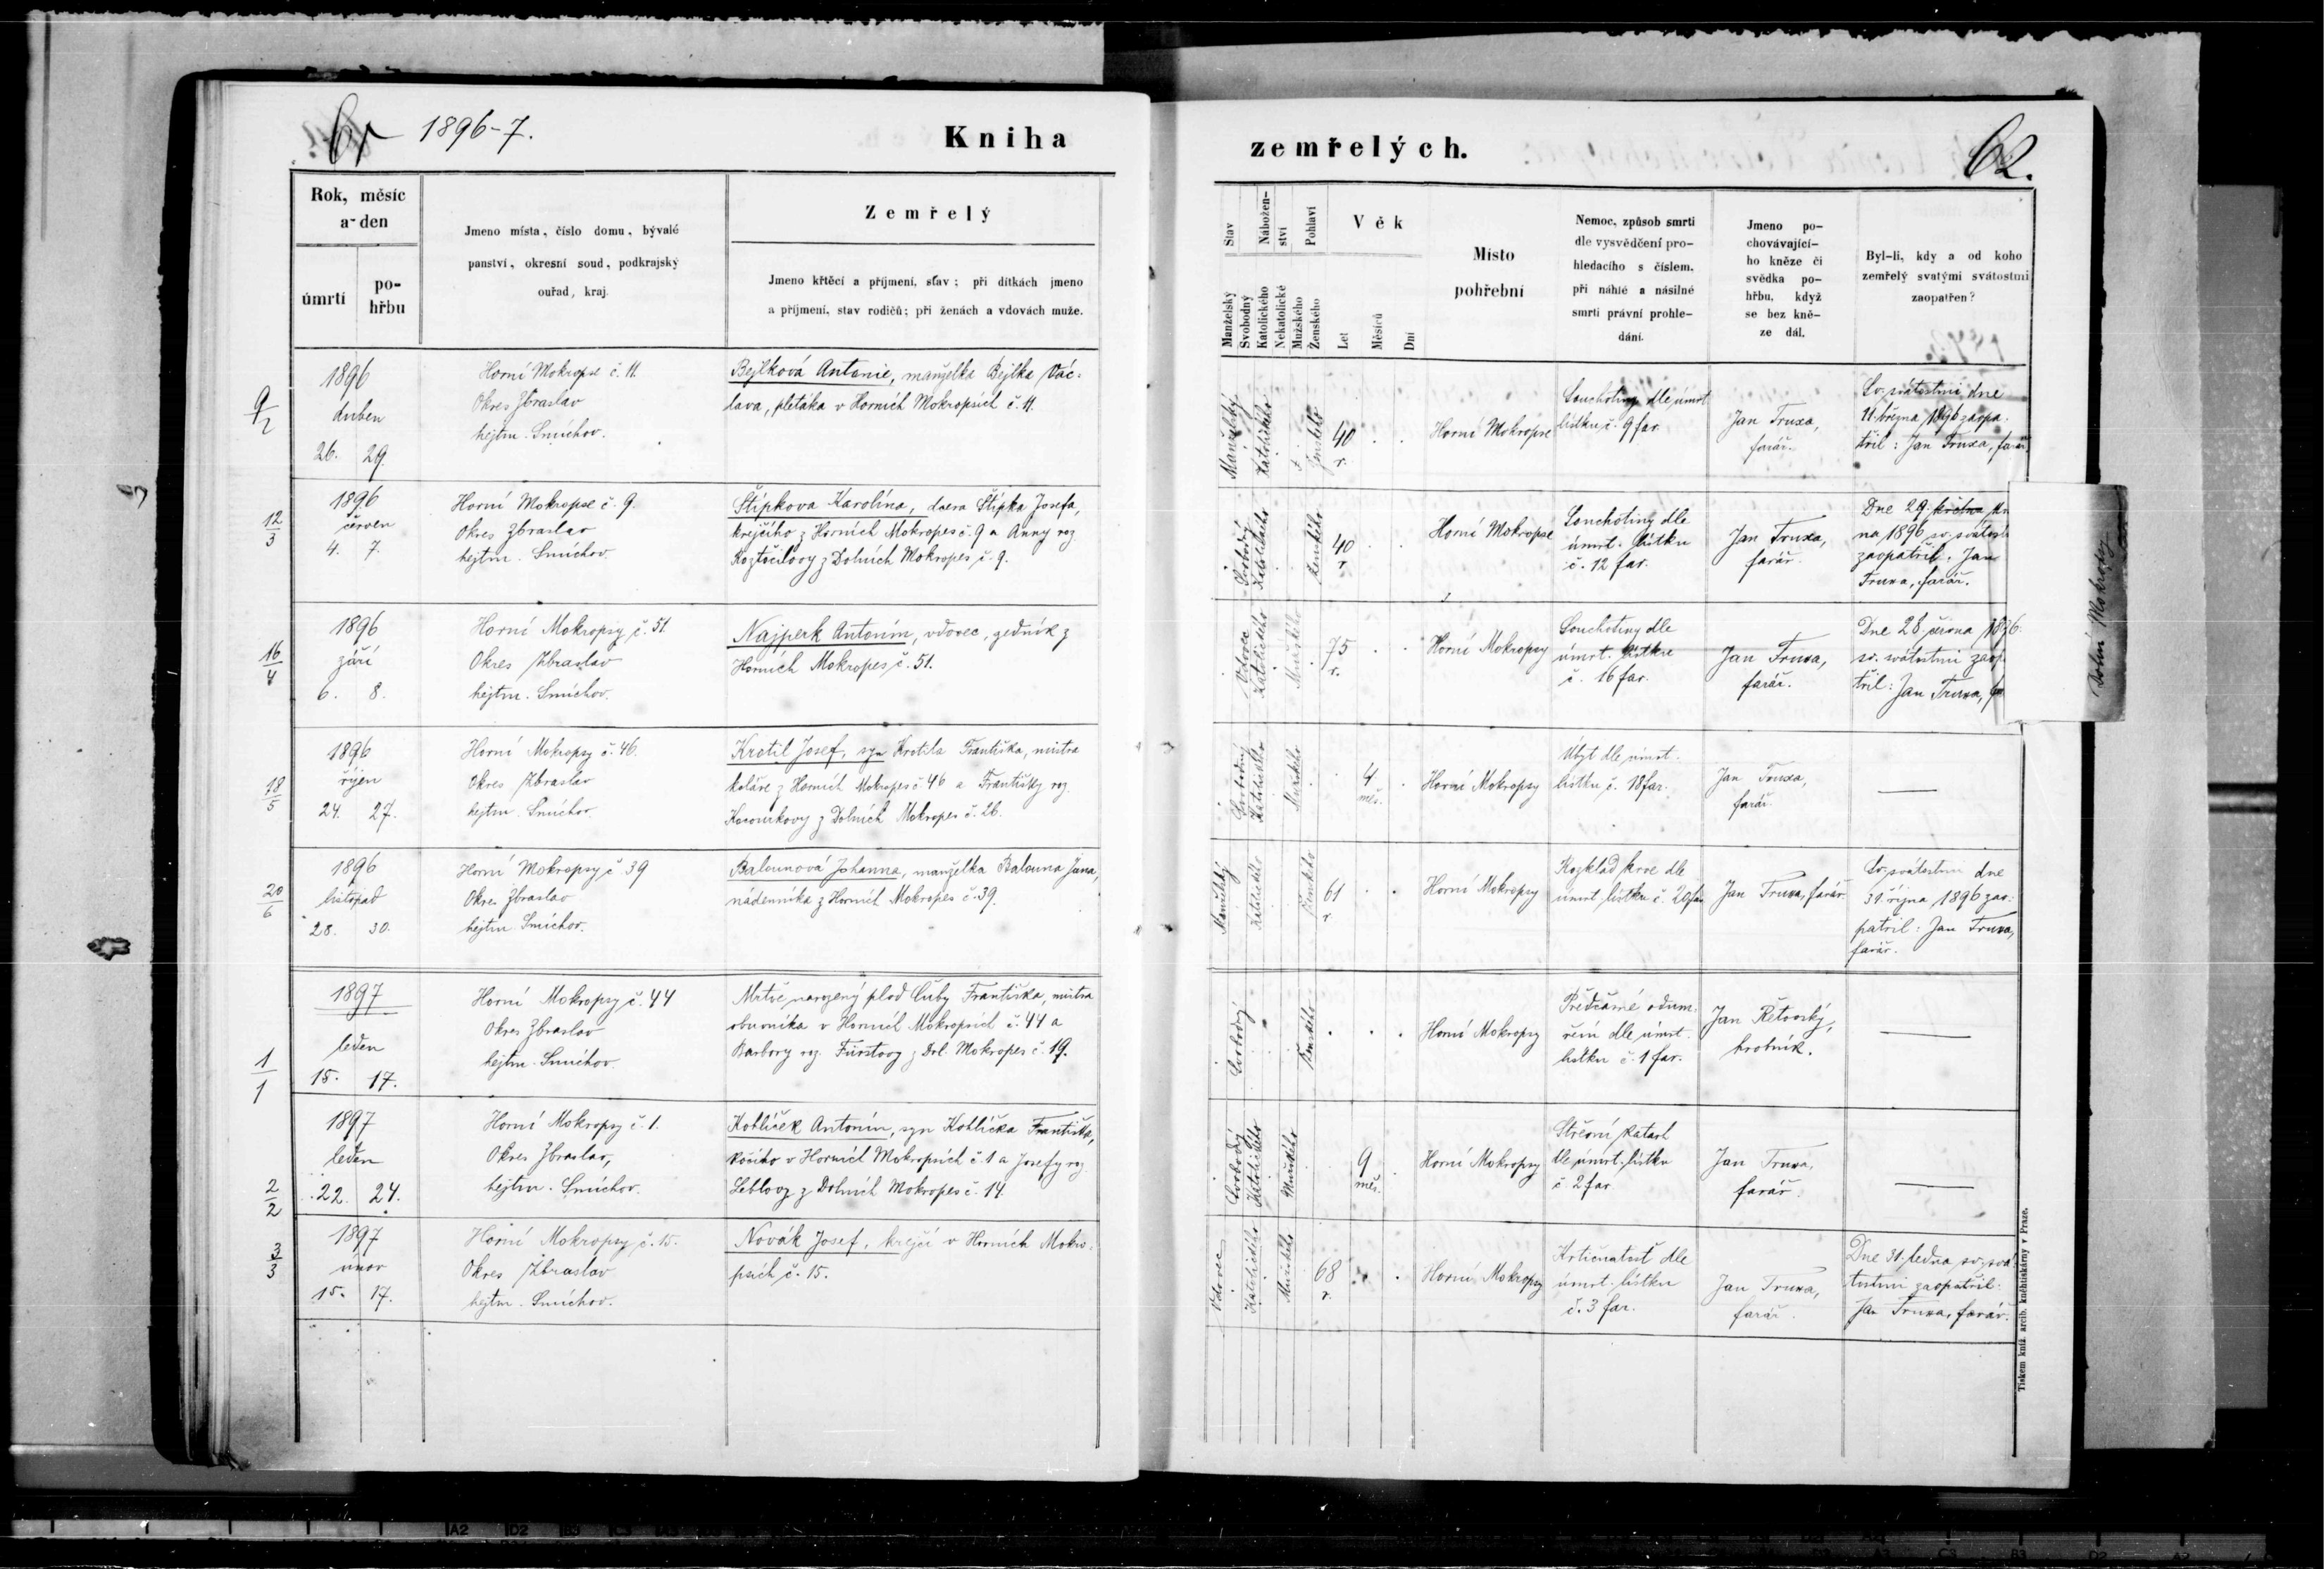 61 1896-7.
Kniha
zemřelých.
62.
Rok, měsíc
a den
úmrtí
po-
hřbu
Jmeno místa, číslo domu, bývalé
panství, okresní soud, podkrajský
ouřad, kraj.
Zemřelý
Jmeno křtěcí a příjmení, stav; při dítkách jmeno
a příjmení, stav rodičů; při ženách a vdovách muže.
Stav
Nábožen-
ství
Pohlaví
Věk
Manželský
Svobodný
Katolického
Nekatolické
Mužského
Ženského
Let
Měsíců
Dní
Místo
pohřební
Nemoc, způsob smrti
dle vysvědčení pro-
hledacího s číslem,
při náhlé a násilné
smrti právní prohle-
dání.
Jmeno po-
chovávající-
ho kněze či
svědka po-
hřbu, když
se bez kně-
ze dál.
Byl-li, kdy a od koho
zemřelý svatými svátostmi
zaopatřen?
9/2
1896
duben
26. 29.
Horní Mokropse č. 11.
Okres Zbraslav
hejtm. Smíchov.
Bejlková Antonie, manželka Bejlka Vác-
lava, pletáka v Horních Mokropsích č. 11.
Manželský
Katolického
Ženského
40
r.
Horní Mokropse
Souchotiny dle úmrt
lístku č. 9 far.
Jan Truxa,
farář.
Sv. svátostmi dne
11. března 1896 zaopa-
třil: Jan Truxa, farář
12/3
1896
červen
4. 7.
Horní Mokropse č. 9.
Okres Zbraslav
hejtm. Smíchov.
Štípkova Karolína, dcera Štípka Josefa,
krejčího z Horních Mokropes č. 9 a Anny roz
Roztočilovy z Dolních Mokropes č. 9.
Svobodný
Katolického
Ženského
40
r
Horní Mokropse
Souchotiny dle
úmrt. lístku
č. 12 far.
Jan Truxa,
farář.
Dne 29. května
na 1896 sv. svátost
zaopatřil. Jan
Truxa, farář.
Dolní Mokropsy
16/4
1896
září
6. 8.
Horní Mokropsy č. 51.
Okres Zbraslav
hejtm. Smíchov.
Najperk Antonín, vdovec, z
Horních Mokropes č. 51.
Vdovec
Katolického
Mužského
75
r.
Horní Mokropsy
Souchotiny dle
úmrt. lístku
č. 16 far.
Jan Truxa,
farář.
Dne 28 června 1896.
sv. svátostmi zaop
třil: Jan Truxa,
18/5
1896
říjen
24. 27.
Horní Mokropsy č. 46.
Okres Zbraslav
hejtm. Smíchov.
Kretil Josef, syn Kretila Františka, mistra
koláře z Horních Mokropes č. 46 a Františky roz.
z Dolních Mokropes č. 26.
Svobodný
Katolického
Mužského
4
měs.
Horní Mokropsy
Úbyt dle úmrt.
lístku č. 18 far.
Jan Truxa,
farář.
20/6
1896
listopad
28. 30.
Horní Mokropsy č 39
Okres Zbraslav
hejtm. Smíchov.
Balounová Johanna, manželka Balouna Jana,
nádenníka z Horních Mokropes č. 39.
Manželský
Katolického
Ženského
61
r
Horní Mokropsy
Rozklad krve dle
úmrt. lístku č. 20 far
Jan Truxa, farář
Sv. svátostmi dne
31. října 1896 zao-
patřil: Jan Truxa,
farář.
1/1
1897
leden
15. 17.
Horní Mokropsy č. 44
Okres Zbraslav
hejtm. Smíchov.
Mrtvě narozený plod Čuby Františka, mistra
obuvníka v Horních Mokropsích č. 44 a
Barbory roz. Fürstovy z Dol. Mokropes č. 19.
Svobodný
Ženského
Horní Mokropsy
Předčasné odum-
ření dle úmrt.
lístku č. 1 far.
Jan Řetovský,
hrobník.
2/2
1897
leden
22. 24.
Horní Mokropsy č. 1.
Okres Zbraslav,
hejtm. Smíchov.
Kohlíček Antonín, syn Kohlíčka Františka,
kočího v Horních Mokropsích č. 1 a Josefy roz
Leblovy z Dolních Mokropes č. 14.
Svobodný
Katolického
Mužského
9
měs.
Horní Mokropsy
Střevní katarh
dle úmrt. lístku
č 2 far.
Jan Truxa,
farář.
3/3
1897
únor
15. 17.
Horní Mokropsy č. 15.
Okres Zbraslav
hejtm. Smíchov.
Novák Josef, krejčí v Horních Mokro-
psích č. 15.
Vdovec
Katolického
Mužského
68
r.
Horní Mokropsy
Krtičnatost dle
úmrt. lístku
č. 3 far.
Jan Truxa,
farář.
Dne 31. ledna sv. svá
tostmi zaopatřil
Jan Truxa, farář.
Tiskem kníž. arcib. kněhtiskárny v Praze.